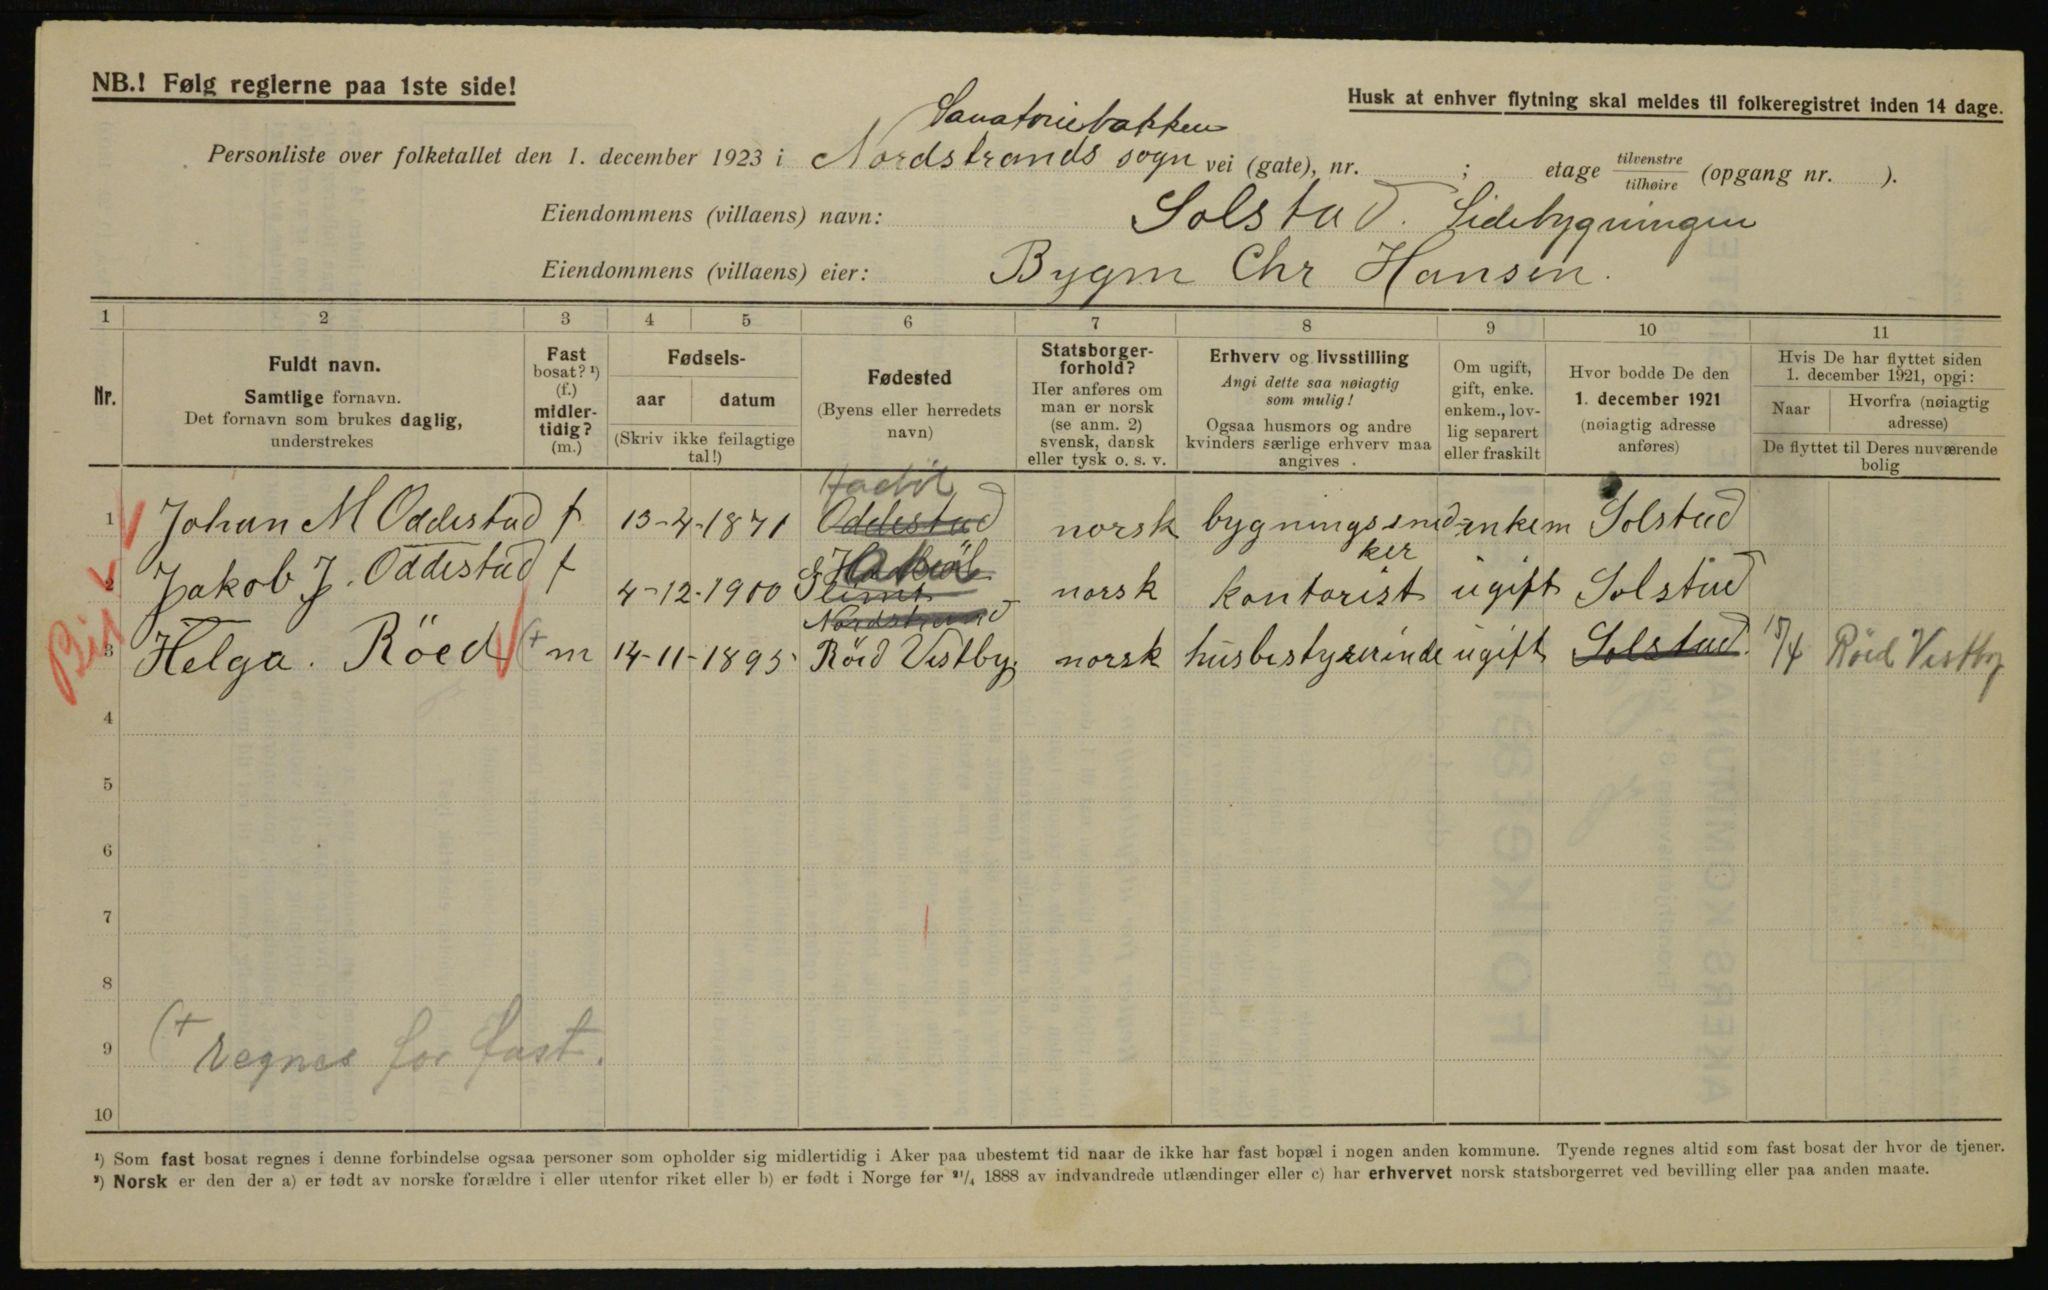 NB.! Følg reglerne paa 1ste side!
Husk at enhver flytning skal meldes til folkeregistret inden 14 dage.
Sanatoriebakken
Personliste over folketallet den 1. december 1923 i Nordstrands sogn vei (gate), nr. ; etage tilvenstre tilhøire (opgang nr. ).
Eiendommens (villaens) navn: Solstad. Sidebygningen
Eiendommens (villaens) eier: Bygm Chr Hansen.
1 2 3 4 5 6 7 8 9 10 11
Nr.
Fuldt navn.
Samtlige fornavn.
Det fornavn som brukes daglig,
understrekes
Fast
bosat? ¹)
(f.)
midler-
tidig?
(m.)
Fødsels-
aar datum
(Skriv ikke feilagtige
tal!)
Fødested
(Byens eller herredets
navn)
Statsborger-
forhold?
Her anføres om
man er norsk
(se anm. 2)
svensk, dansk
eller tysk o. s. v.
Erhverv og livsstilling
Angi dette saa nøiagtig
som mulig!
Ogsaa husmors og andre
kvinders særlige erhverv maa
angives .
Om ugift,
gift, enke.
enkem., lov-
lig separert
eller fraskilt
Hvor bodde De den
1. december 1921
(nøiagtig adresse
anføres)
Hvis De har flyttet siden
1. december 1921, opgi:
Naar Hvorfra (nøiagtig
adresse)
De flyttet til Deres nuværende
bolig
1 Johan M Oddestad f 13-4-1871 Oddestad norsk bygningssned- enkem Solstad
ker
2 Jakob J. Oddestad f 4-12-1900 norsk kontorist ugift Solstad
Nordstrand
3 Helga. Röed (+ m 14-11-1895 Röed Vestby. norsk husbestyrerinde ugift Solstad. 15/4 Röed Vestby
4
5
6
7
8
9
(+
regnes for fast.
10
¹) Som fast bosat regnes i denne forbindelse ogsaa personer som opholder sig midlertidig i Aker paa ubestemt tid naar de ikke har fast bopæl i nogen anden kommune. Tyende regnes altid som fast bosat der hvor de tjener.
²) Norsk er den der a) er født av norske forældre i eller utenfor riket eller b) er født i Norge før ²¹/₄ 1888 av indvandrede utlændinger eller c) har erhvervet norsk statsborgerret ved bevilling eller paa anden maate.